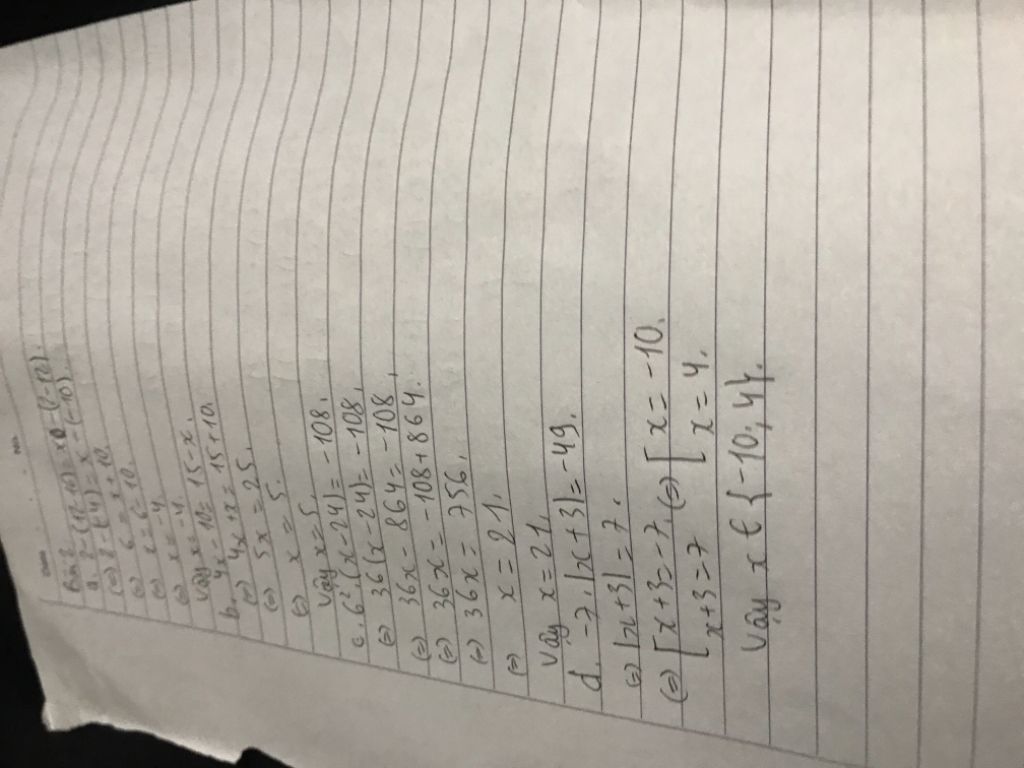 No.
Bài 2
a. 2-(12-10)= x-(-12).
(=) 2-(4)= x-(-10).
(=) 6 = x+10.
(=) x = 6-10.
(=) x = -4.
Vậy x = -4.
b. 4x-10= 15-x.
(=) 4x+x= 15+10.
(=) 5x = 25.
(=) x = 5.
Vậy x=5.
c. 6².(x-24)= -108.
(=) 36(x-24)= -108.
(=) 36x-864= -108.
(=) 36x= -108+864.
(=) 36x= 756.
(=) x = 21.
Vậy x=21.
d. -7.|x+3|=-49.
(=) |x+3|=7.
(=) [x+3=-7. (=) [x=-10.
[x+3=7 [x=4.
Vậy x∈{-10;4}.